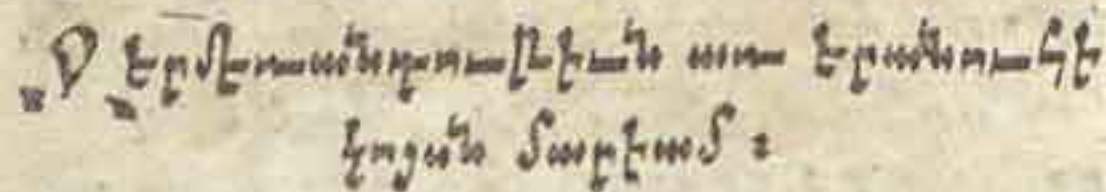 Ջերմեռանդութեան առ երանուհի
կոյսն մարիամ ։